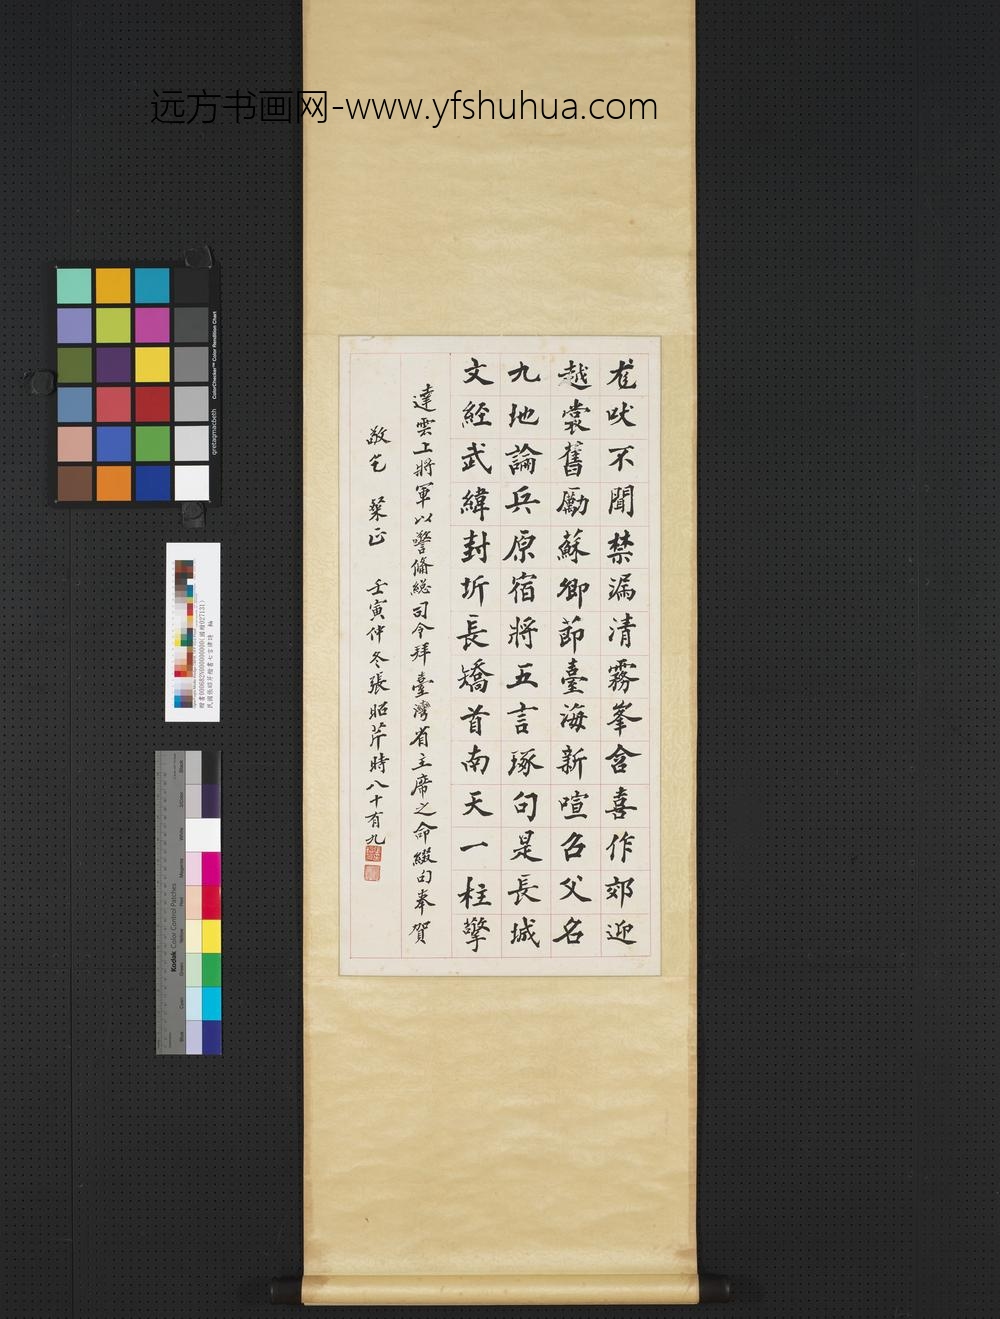 远方书画网-www.yfshuhua.com
尨吠不聞禁漏清霧峯含喜作郊迎
越裳舊勵蘇卿節臺海新喧召父名
九地論兵原宿將五言琢句是長城
文經武緯封圻長矯首南天一柱擎
達雲上將軍以警備總司令拜臺灣省主席之命綴句奉賀
敬乞棨正 壬寅仲冬張昭芹時八十有九
ColorChecker™ Color Rendition Chart
gretagmacbeth
民國張昭芹楷書七言律詩 軸
Kodak Color Control Patches
Black
3/Color
White
Magenta
Red
Yellow
Green
Cyan
Blue